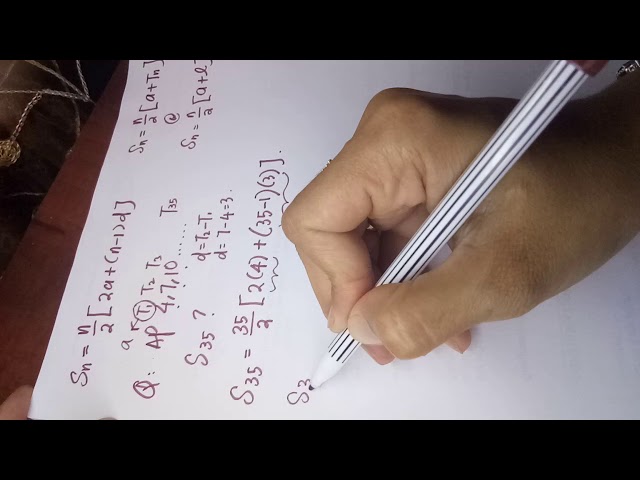 Sn = n/2 [2a+(n-1)d]
Sn = n/2 [a+Tn]
@
Sn = n/2 [a+l]
a
Q: AP T1 T2 T3 T35
4,7,10.......
S35 ?
d=T2-T1
d=7-4=3.
S35 = 35/2 [2(4)+(35-1)(3)].
S3